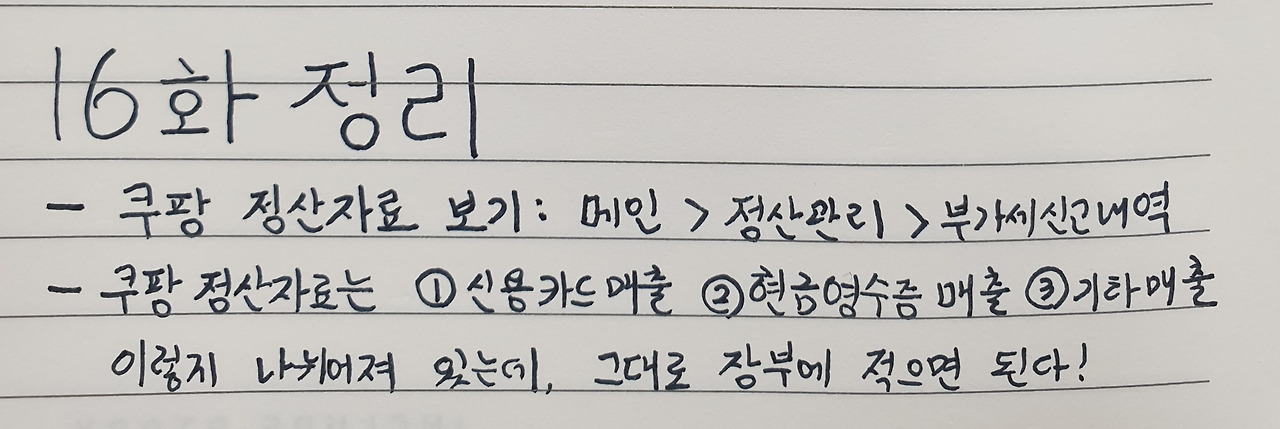 16화 정리
- 쿠팡 정산자료 보기: 메인 > 정산관리 > 부가세신고내역
- 쿠팡 정산자료는 ① 신용카드매출 ② 현금영수증 매출 ③ 기타매출
이렇지 나뉘어져 있는데, 그대로 장부에 적으면 된다!